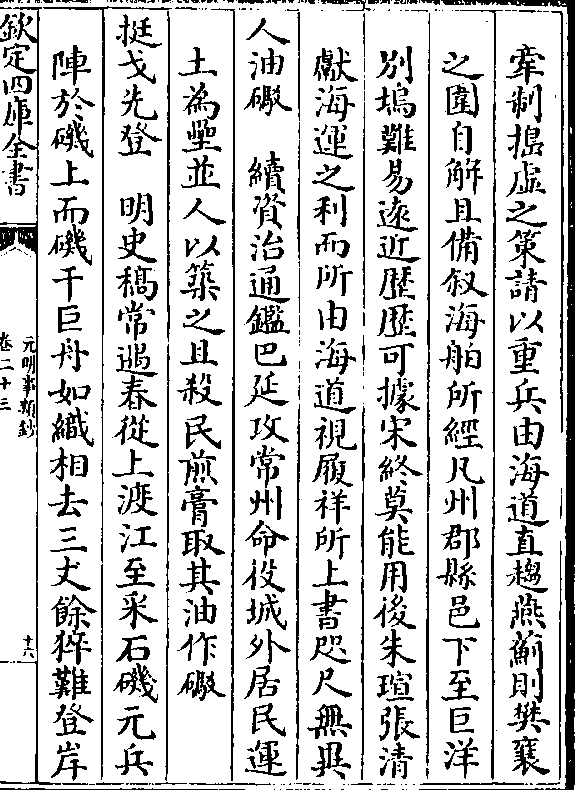 牽制搗虛之策請以重兵由海道直趨燕薊則樊襄
之圍自解且備叙海舶所經凡州郡縣邑下至巨洋
別塢難易逺近歴歴可據宋終莫能用後朱瑄張清
獻海運之利而所由海道視履祥所上書咫尺無異
人油礮　續資治通鑑巴延攻常州命役城外居民運
土為壘並人以築之且殺民煎膏取其油作礮
挺戈先登　明史稿常遇春從上渡江至采石磯元兵
陣於磯上而磯干巨舟如織相去三丈餘猝難登岸
欽定四庫全書
元明事類鈔
卷二十三
十六